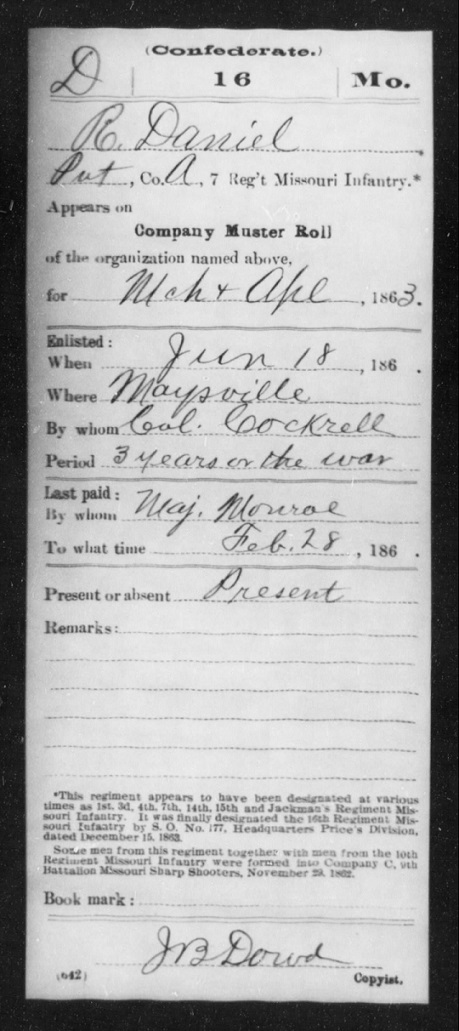 (Confederate.)
D | 16 | Mo.
R. Daniel
Pvt, Co. A, 7 Reg't Missouri Infantry.*
Appears on
Company Muster Roll
of the organization named above,
for Mch & Apl, 1863.
Enlisted:
When Jun 18, 186 .
Where Maysville
By whom Col. Cockrell
Period 3 years or the war
Last paid:
By whom Maj. Monroe
To what time Feb. 28, 186 .
Present or absent Present
Remarks:
*This regiment appears to have been designated at various
times as 1st, 3d, 4th, 7th, 14th, 15th and Jackman's Regiment Mis-
souri Infantry. It was finally designated the 16th Regiment Mis-
souri Infantry by S. O. No. 177, Headquarters Price's Division,
dated December 15, 1863.
Some men from this regiment together with men from the 10th
Regiment Missouri Infantry were formed into Company C, 9th
Battalion Missouri Sharp Shooters, November 29, 1862.
Book mark:
J B Dowd
(642) Copyist.